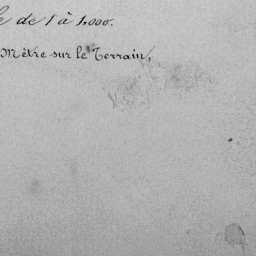 de 1 à 1,000.
Mètre sur le Terrain,